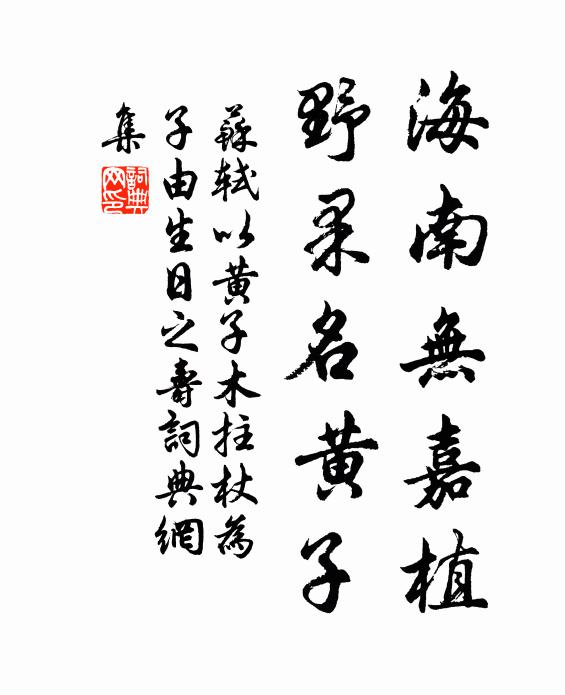 海南無嘉植
野果名黄子
蘇軾以黄子木拄杖為
子由生日之壽詞典網
集
詞典網印